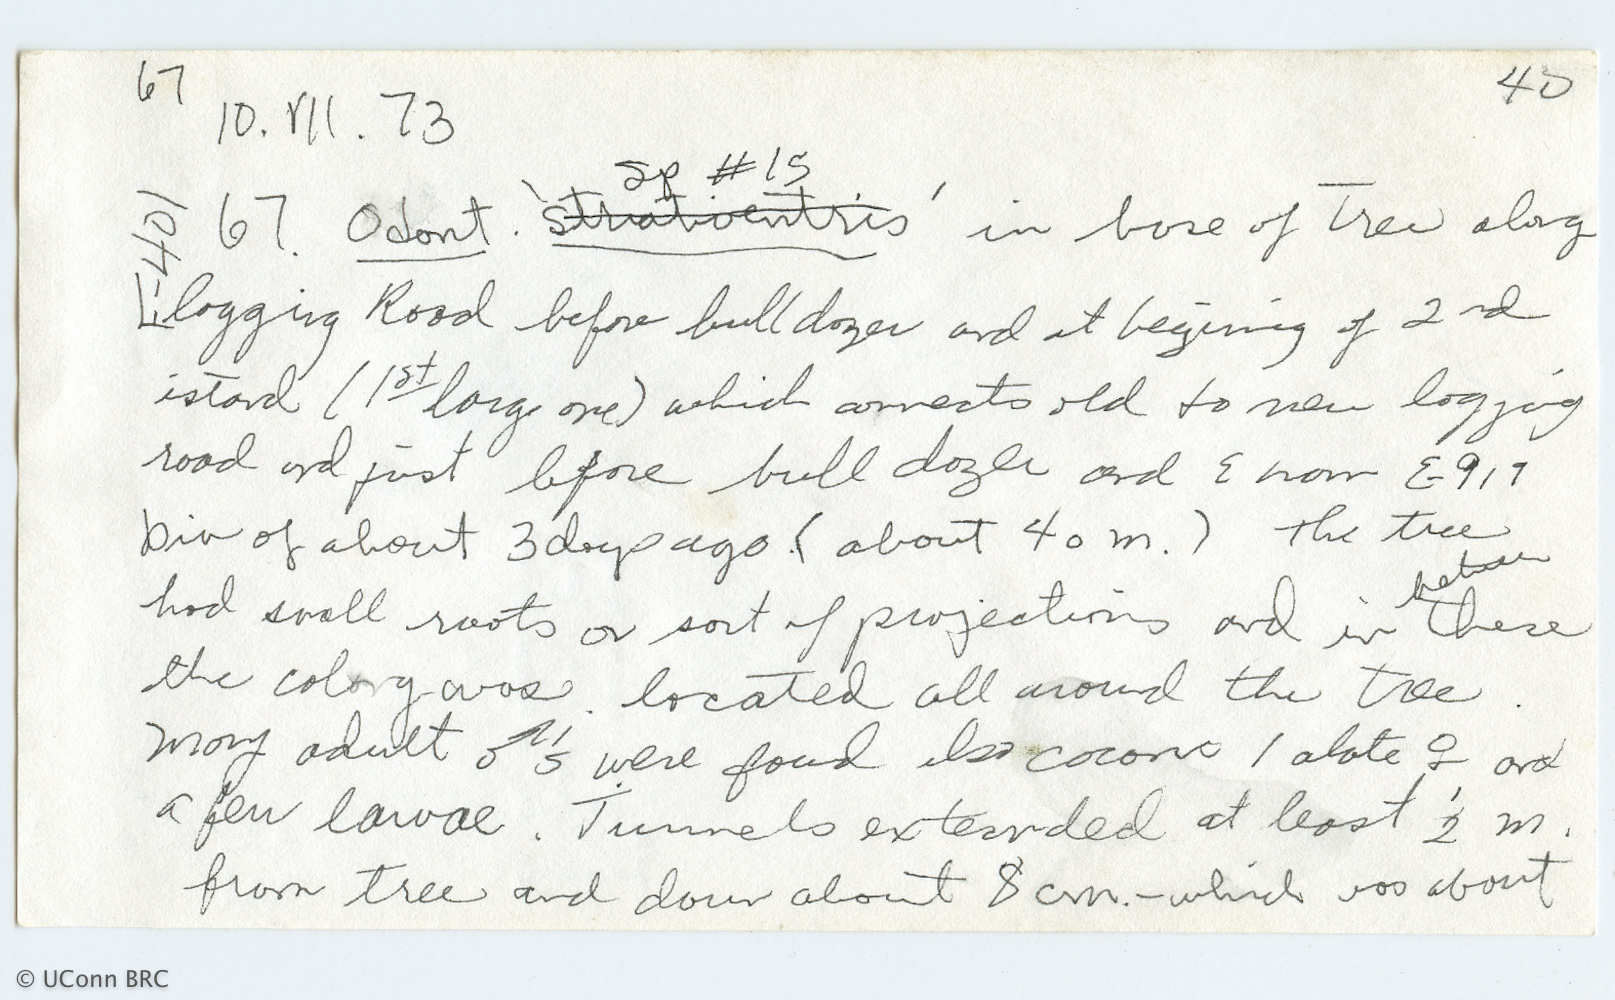 67 40
10. VII. 73
sp #15
E-401 67. Odont. 'stratioentris' in base of Tree along
logging Road before bulldozer and at begining of 2nd
istand (1st large one) which connects old to new logging
road and just before bull dozer and E-917
biv of about 3 days ago. (about 40 m.) The tree
between
had small roots or sort of projections and in these
the colony was located all around the tree.
Many adult ♂'s were found also cocoons 1 alate ♀ and
a few larvae. Tunnels extended at least 1/2 m.
from tree and down about 8 cm. - which was about
© UConn BRC